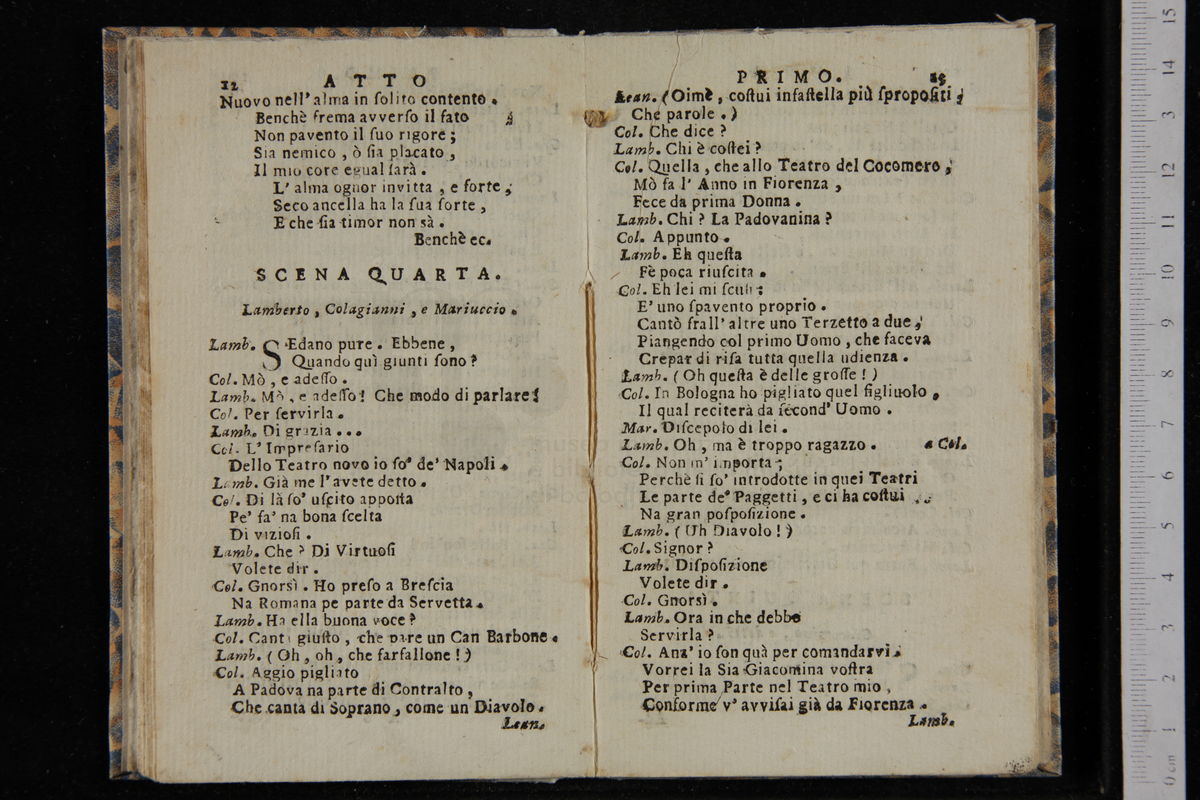 12 ATTO
Nuovo nell' alma in ſolito contento.
Benchè frema avverſo il fato
Non pavento il ſuo rigore;
Sia nemico, ò ſia placato,
Il mio core egual ſarà.
L' alma ognor invitta, e forte,
Seco ancella ha la ſua ſorte,
E che ſia timor non sà.
Benchè ec.
SCENA QUARTA.
Lamberto, Colagianni, e Mariuccio.
Lamb. SEdano pure. Ebbene,
Quando quì giunti ſono?
Col. Mò, e adeſſo.
Lamb. Mò, e adeſſo! Che modo di parlare!
Col. Per ſervirla.
Lamb. Di grazia...
Col. L' Impreſario
Dello Teatro novo io ſo' de' Napoli.
Lamb. Già me l' avete detto.
Col. Di là ſo' uſcito appoſta
Pe' fa' na bona ſcelta
Di vizioſi.
Lamb. Che? Di Virtuoſi
Volete dir.
Col. Gnorsì. Ho preſo a Breſcia
Na Romana pe parte da Servetta.
Lamb. Ha ella buona voce?
Col. Canta giuſto, che pare un Can Barbone.
Lamb. (Oh, oh, che farfallone!)
Col. Aggio pigliato
A Padova na parte di Contralto,
Che canta di Soprano, come un Diavolo.
Lean.
PRIMO. 13
Lean. (Oimè, coſtui infaſtella più ſpropoſiti,
Che parole.)
Col. Che dice?
Lamb. Chi è coſtei?
Col. Quella, che allo Teatro del Cocomero,
Mò fa l' Anno in Fiorenza,
Fece da prima Donna.
Lamb. Chi? La Padovanina?
Col. Appunto.
Lamb. Eh queſta
Fè poca riuſcita.
Col. Eh lei mi ſcuſi:
E' uno ſpavento proprio.
Cantò frall' altre uno Terzetto a due,
Piangendo col primo Uomo, che faceva
Crepar di riſa tutta quella udienza.
Lamb. (Oh queſta è delle groſſe!)
Col. In Bologna ho pigliato quel figliuolo,
Il qual reciterà da ſecond' Uomo.
Mar. Diſcepolo di lei.
Lamb. Oh, ma è troppo ragazzo. a Col.
Col. Non m' importa;
Perchè ſi ſo' introdotte in quei Teatri
Le parte de' Paggetti, e ci ha coſtui
Na gran poſpoſizione.
Lamb. (Uh Diavolo!)
Col. Signor?
Lamb. Diſpoſizione
Volete dir.
Col. Gnorsì.
Lamb. Ora in che debbo
Servirla?
Col. Anz' io ſon quà per comandarvi.
Vorrei la Sia Giacomina voſtra
Per prima Parte nel Teatro mio,
Conforme v' avviſai già da Fiorenza.
Lamb.